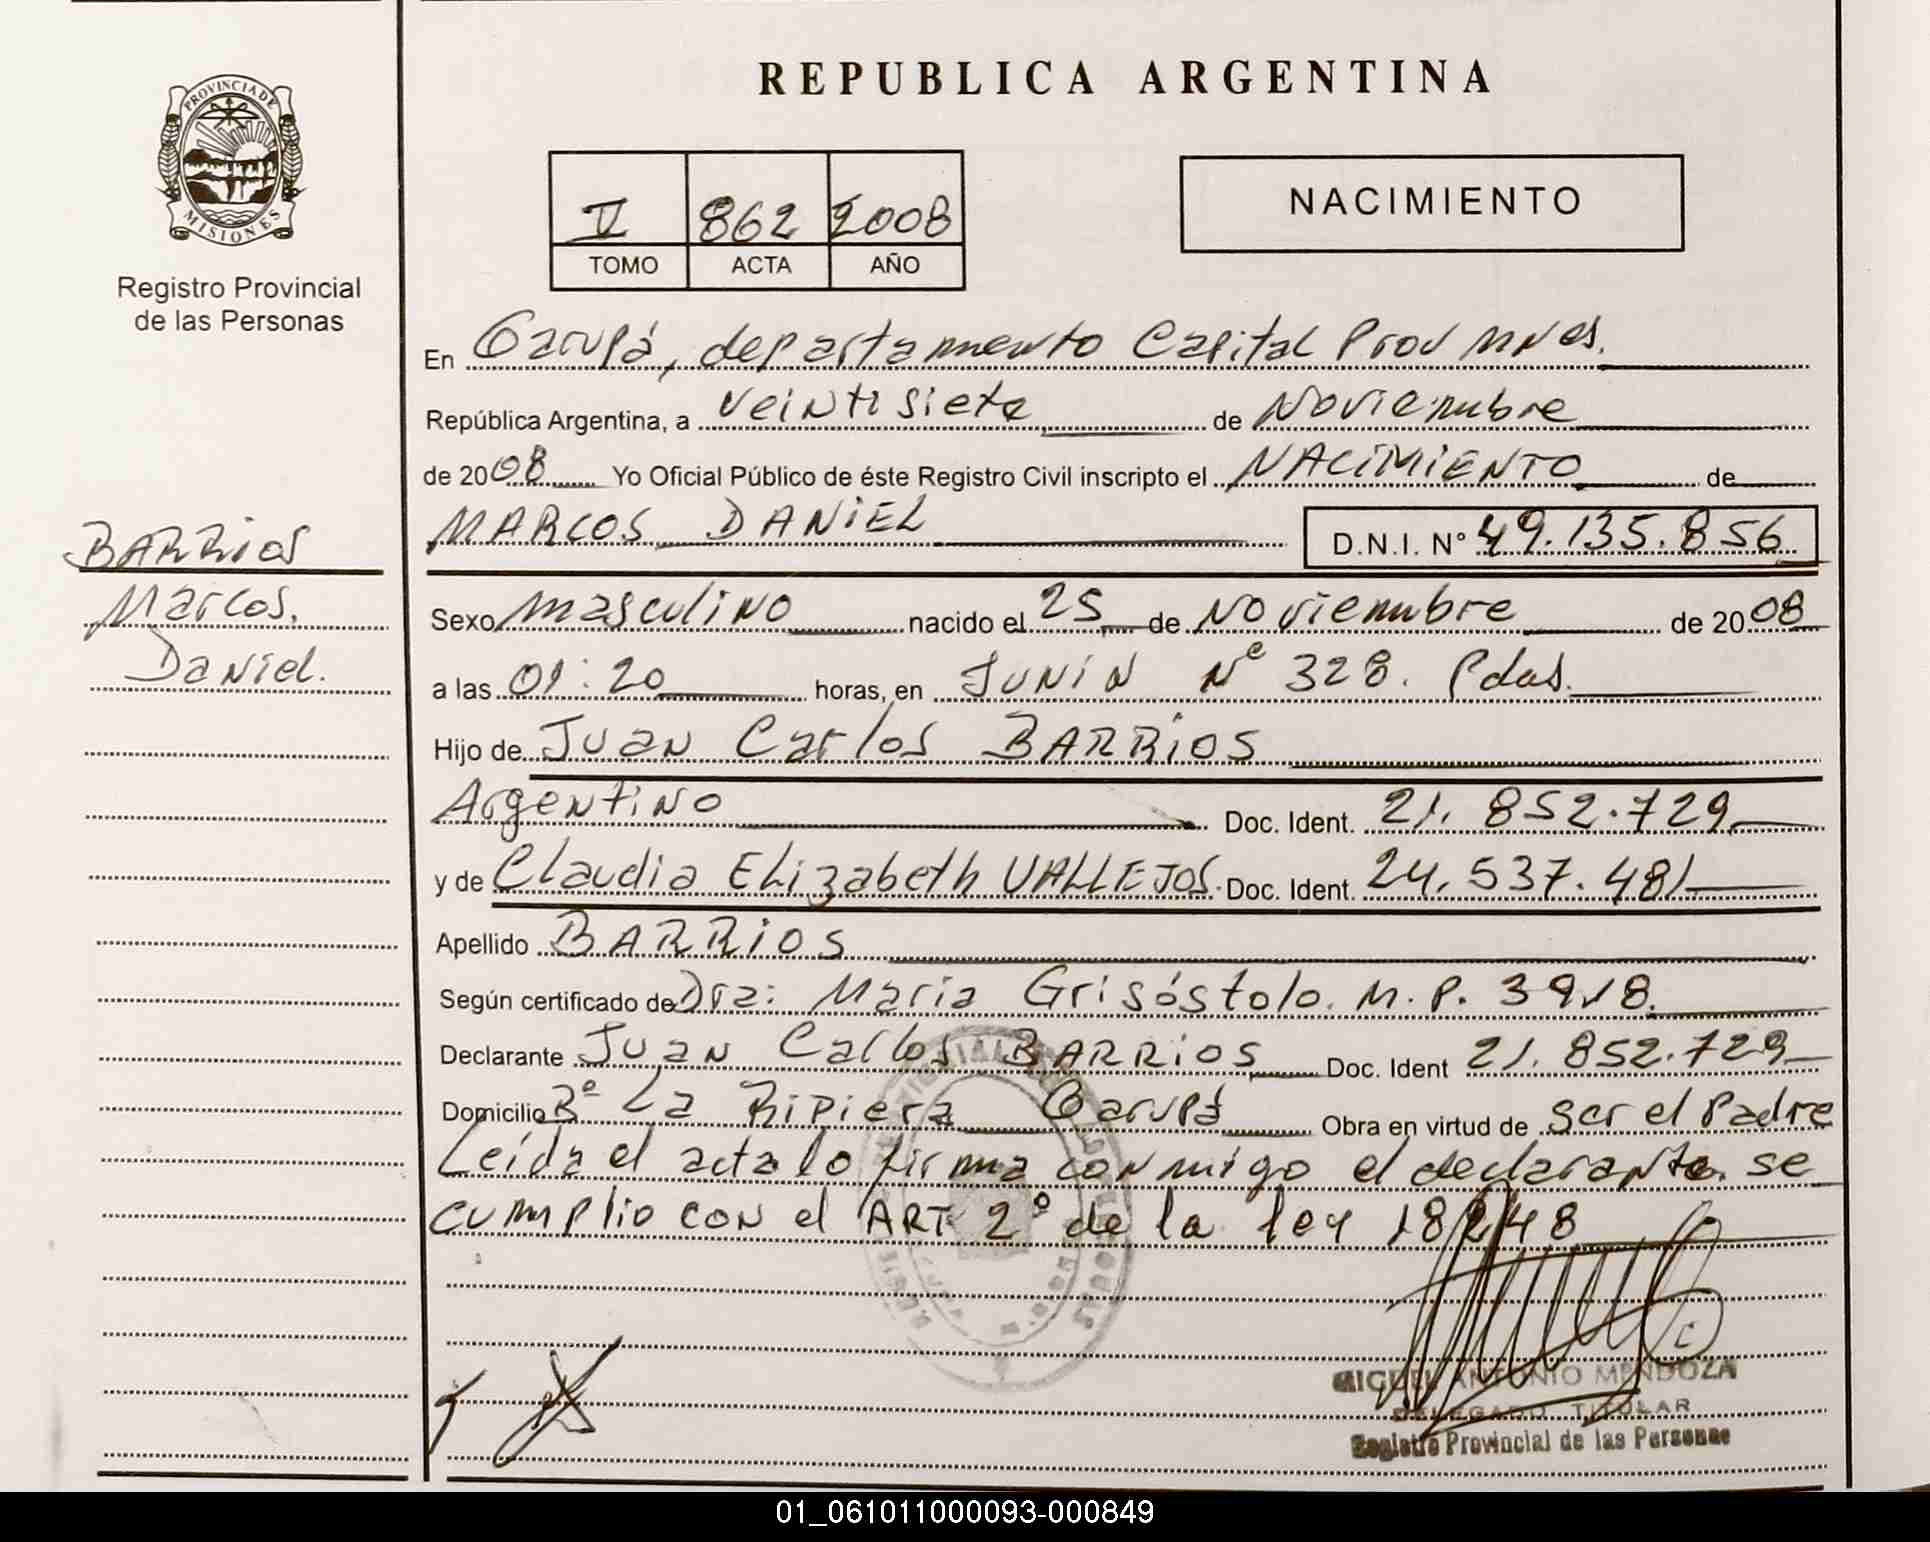 REPUBLICA ARGENTINA
PROVINCIA DE
MISIONES
Registro Provincial
de las Personas
V 862 2008
TOMO ACTA AÑO
NACIMIENTO
En Garupá, departamento Capital Prov Mnes.
República Argentina, a veintisiete de Noviembre
de 2008 Yo Oficial Público de éste Registro Civil inscripto el NACIMIENTO de
BARRIOS
MARCOS DANIEL D.N.I. N° 49.135.856
Marcos.
Daniel.
Sexo masculino nacido el 25 de Noviembre de 2008
a las 01:20 horas, en JUNIN Nº 328. Pdas.
Hijo de Juan Carlos BARRIOS
Argentino Doc. Ident. 21.852.729
y de Claudia Elizabeth VALLEJOS. Doc. Ident. 24.537.481
Apellido BARRIOS
Según certificado de Dra: Maria Grisóstolo. M.P. 3918.
Declarante Juan Carlos BARRIOS Doc. Ident 21.852.729
Domicilio Bº La Ripiera Garupá Obra en virtud de ser el Padre
Leída el acta lo firma conmigo el declarante. se
cumplio con el ART 2º de la ley 18248
MIGUEL ANTONIO MENDOZA
DELEGADO TITULAR
Registro Provincial de las Personas
01_061011000093-000849